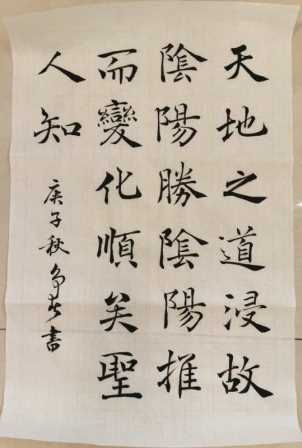 天地之道浸故
陰陽勝陰陽推
而變化順矣聖
人知
庚子秋書